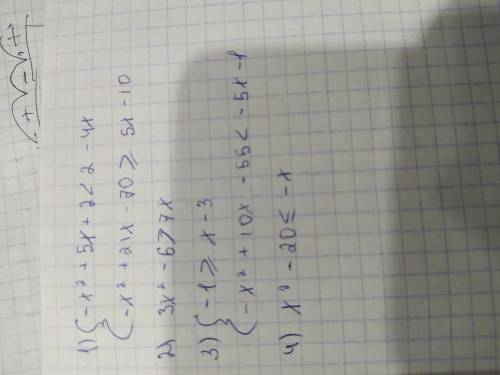 1) { -x² + 5x + 2 < 2 - 4x
-x² + 21x - 70 ⩾ 5x - 10
2) 3x² - 6 ⩾ 7x
3) { -1 ⩾ x - 3
-x² + 10x - 55 < -5x - 1
4) x² - 20 ≤ -x